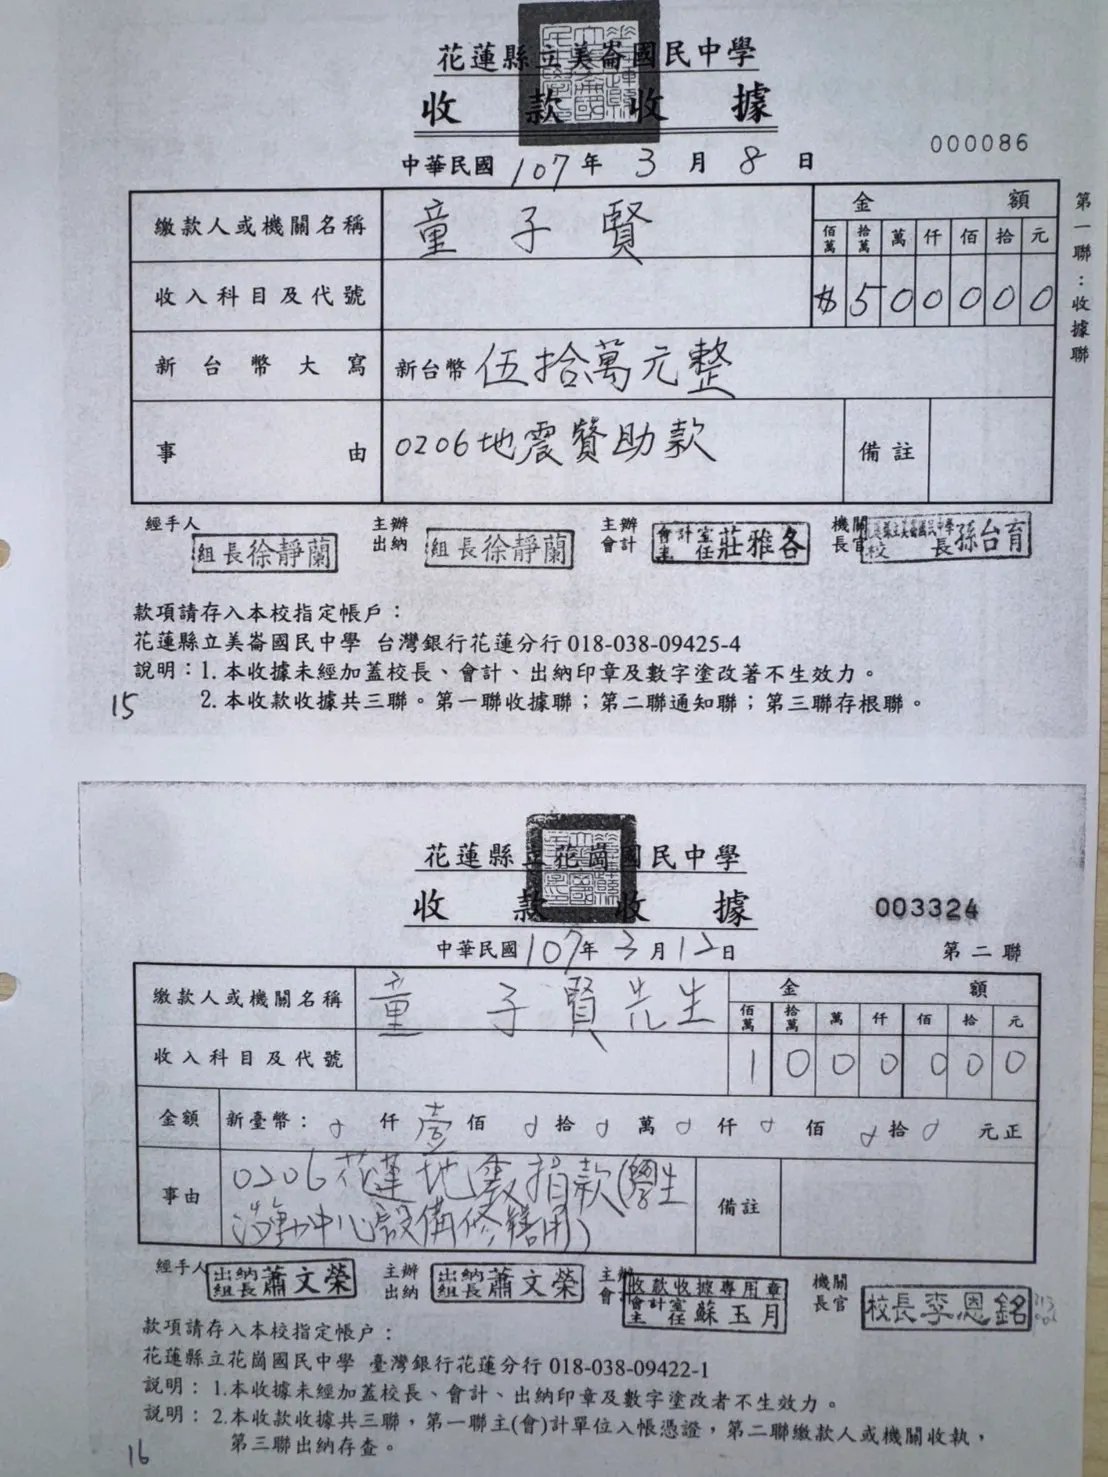 花蓮縣立美崙國民中學
收款收據
000086
中華民國 107 年 3 月 8 日
第一聯：收據聯
繳款人或機關名稱 童子賢
金額
佰萬 拾萬 萬 仟 佰 拾 元
收入科目及代號
$ 5 0 0 0 0 0
新台幣大寫 新台幣 伍拾萬元整
事由 0206地震贊助款 備註
經手人 組長徐靜蘭 主辦出納 組長徐靜蘭 主辦會計 會計室主任莊雅各 機關長官 校長孫台育
款項請存入本校指定帳戶：
花蓮縣立美崙國民中學 台灣銀行花蓮分行 018-038-09425-4
說明：1. 本收據未經加蓋校長、會計、出納印章及數字塗改著不生效力。
2. 本收款收據共三聯。第一聯收據聯；第二聯通知聯；第三聯存根聯。
15
花蓮縣立花崗國民中學
收款收據
003324
中華民國 107 年 3 月 12 日
第二聯
繳款人或機關名稱 童子賢先生
金額
佰萬 拾萬 萬 仟 佰 拾 元
收入科目及代號
1 0 0 0 0 0 0
金額 新臺幣： 0 仟 壹 佰 0 拾 0 萬 0 仟 0 佰 0 拾 0 元正
事由 0206花蓮地震捐款(學生
活動中心設備修繕用) 備註
經手人 出納組長蕭文榮 主辦出納 出納組長蕭文榮 主辦會計 收款收據專用章 會計室主任蘇玉月 機關長官 校長李恩銘
款項請存入本校指定帳戶：
花蓮縣立花崗國民中學 臺灣銀行花蓮分行 018-038-09422-1
說明： 1.本收據未經加蓋校長、會計、出納印章及數字塗改者不生效力。
說明： 2.本收款收據共三聯，第一聯主(會)計單位入帳憑證，第二聯繳款人或機關收執，
第三聯出納存查。
16